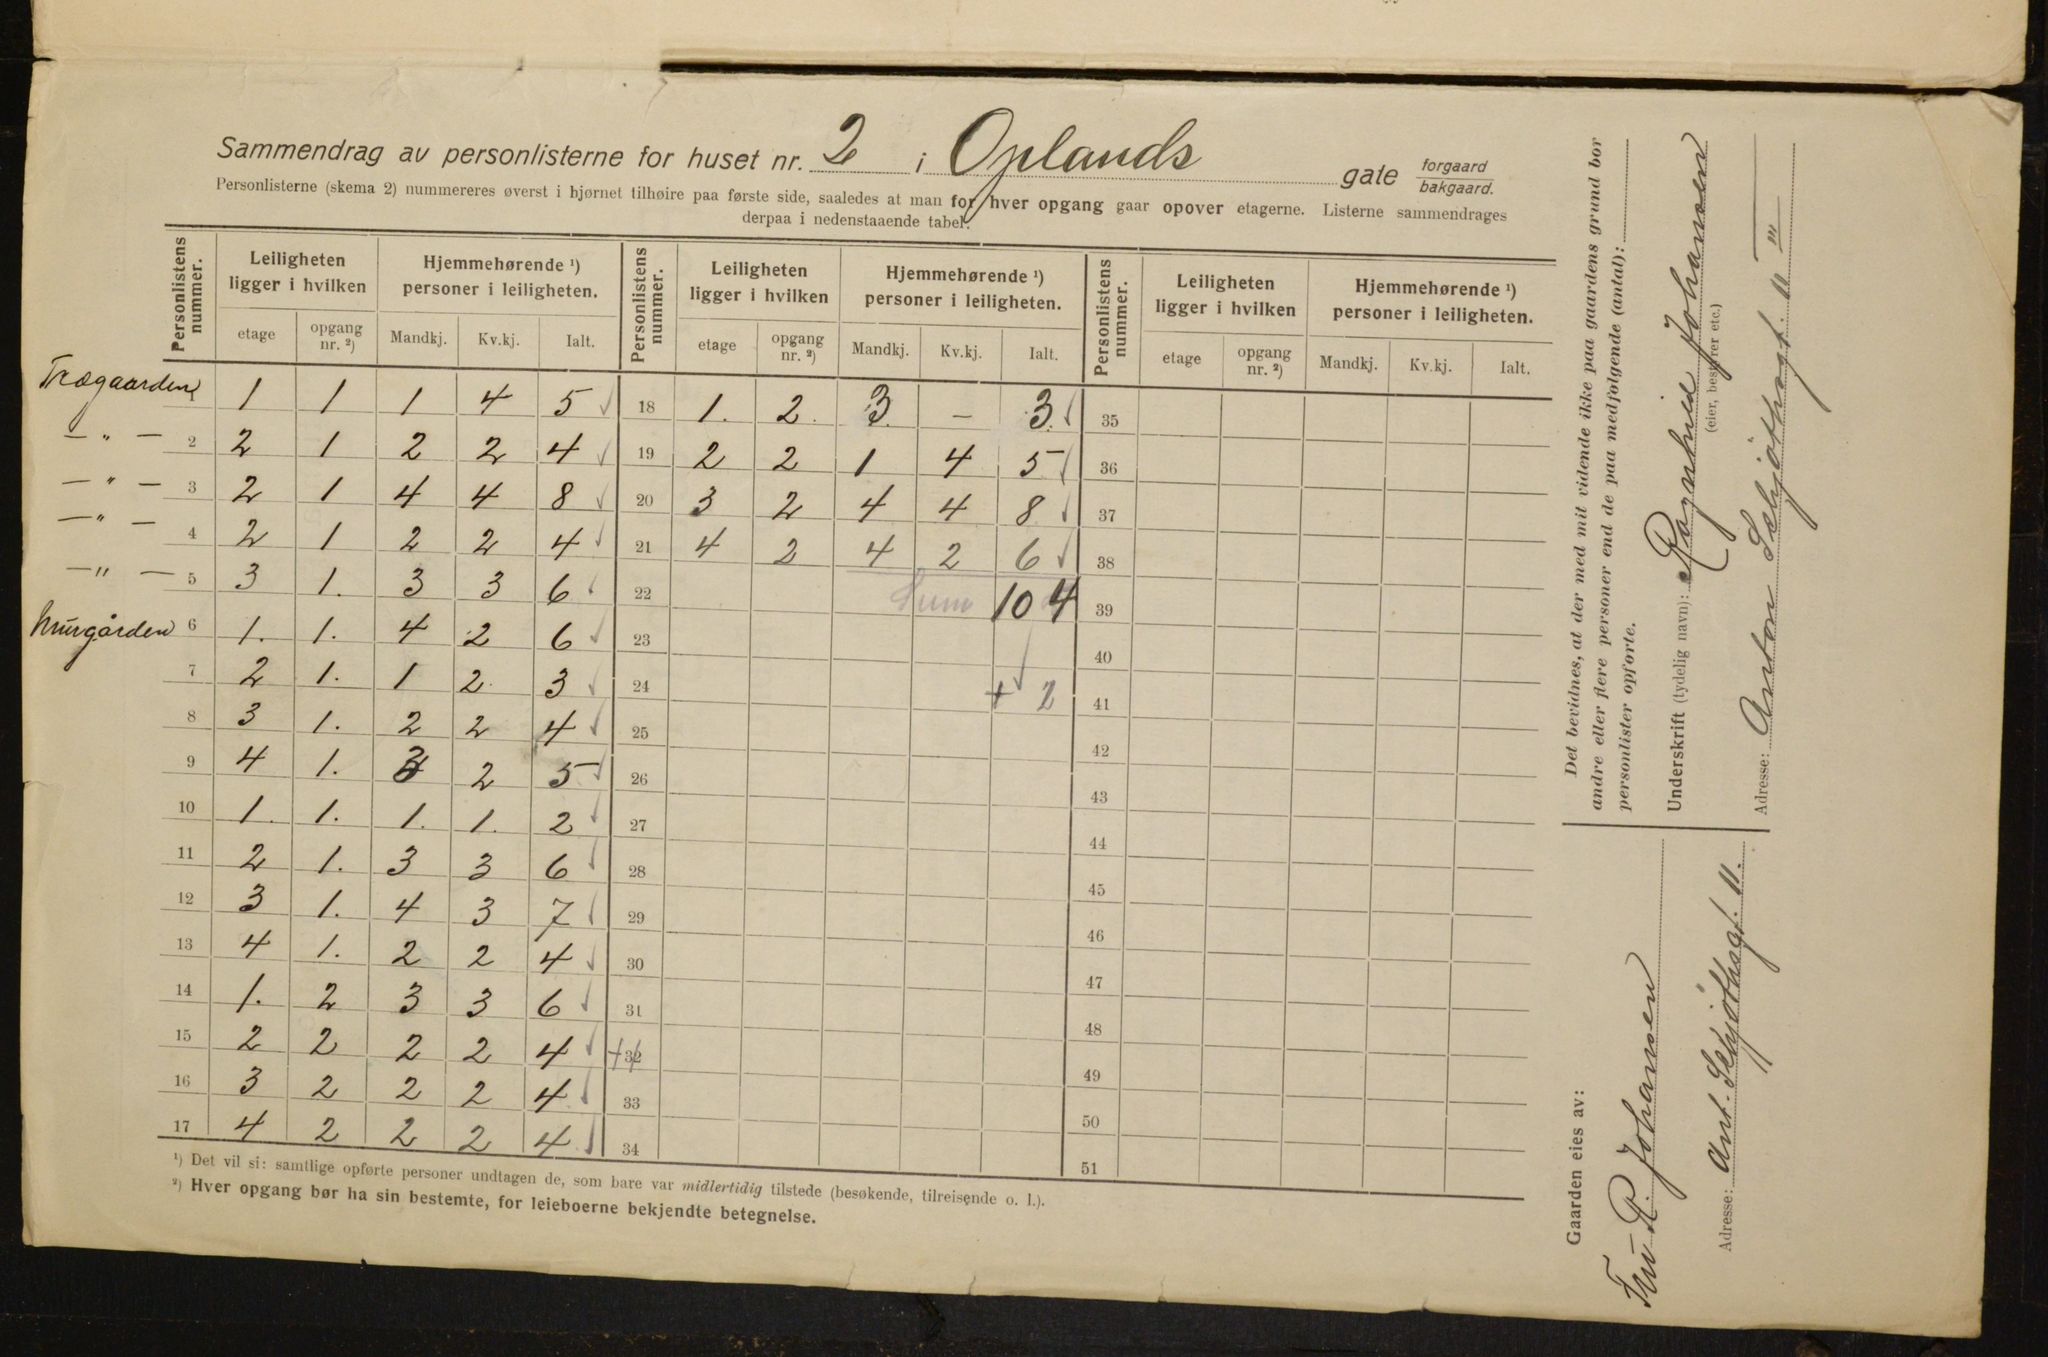 Sammendrag av personlisterne for huset nr. 2 i Oplands gate forgaard bakgaard.
Personlisterne (skema 2) nummereres øverst i hjørnet tilhøire paa første side, saaledes at man for hver opgang gaar opover etagerne. Listerne sammendrages
derpaa i nedenstaaende tabel.
Personlistens nummer. Leiligheten ligger i hvilken Hjemmehørende ¹) personer i leiligheten. Personlistens nummer. Leiligheten ligger i hvilken Hjemmehørende ¹) personer i leiligheten. Personlistens nummer. Leiligheten ligger i hvilken Hjemmehørende ¹) personer i leiligheten.
etage opgang nr. ²) Mandkj. Kv.kj. Ialt. etage opgang nr. ²) Mandkj. Kv.kj. Ialt. etage opgang nr. ²) Mandkj. Kv.kj. Ialt.
Trægaarden 1 1 1 1 4 5 18 1. 2. 3. – 3. 35
— " — 2 2 1 2 2 4 19 2 2 1 4 5 36
— " — 3 2 1 4 4 8 20 3 2 4 4 8 37
— " — 4 2 1 2 2 4 21 4 2 4 2 6 38
— " — 5 3 1. 3 3 6 22 Sum 104 39
Murgården 6 1. 1. 4 2 6 23 40
7 2 1. 1 2 3 24 + 2 41
8 3 1. 2 2 4 25 42
9 4 1. 3 2 5 26 43
10 1. 1. 1. 1. 2 27 44
11 2 1. 3 3 6 28 45
12 3 1. 4 3 7 29 46
13 4 1. 2 2 4 30 47
14 1. 2 3 3 6 31 48
15 2 2 2 2 4 32 49
16 3 2 2 2 4 33 50
17 4 2 2 2 4 34 51
¹) Det vil si: samtlige opførte personer undtagen de, som bare var midlertidig tilstede (besøkende, tilreisende o. l.).
²) Hver opgang bør ha sin bestemte, for leieboerne bekjendte betegnelse.
Det bevidnes, at der med mit vidende ikke paa gaardens grund bor
andre eller flere personer end de paa medfølgende (antal):
personlister opførte.
Underskrift (tydelig navn): Ragnhild Johansen
(eier, bestyrer etc.)
Adresse: Anton Schjøthsgt. 11 III
Gaarden eies av:
Fru R. Johansen
Adresse: Ant. Schjøthsgt. 11.